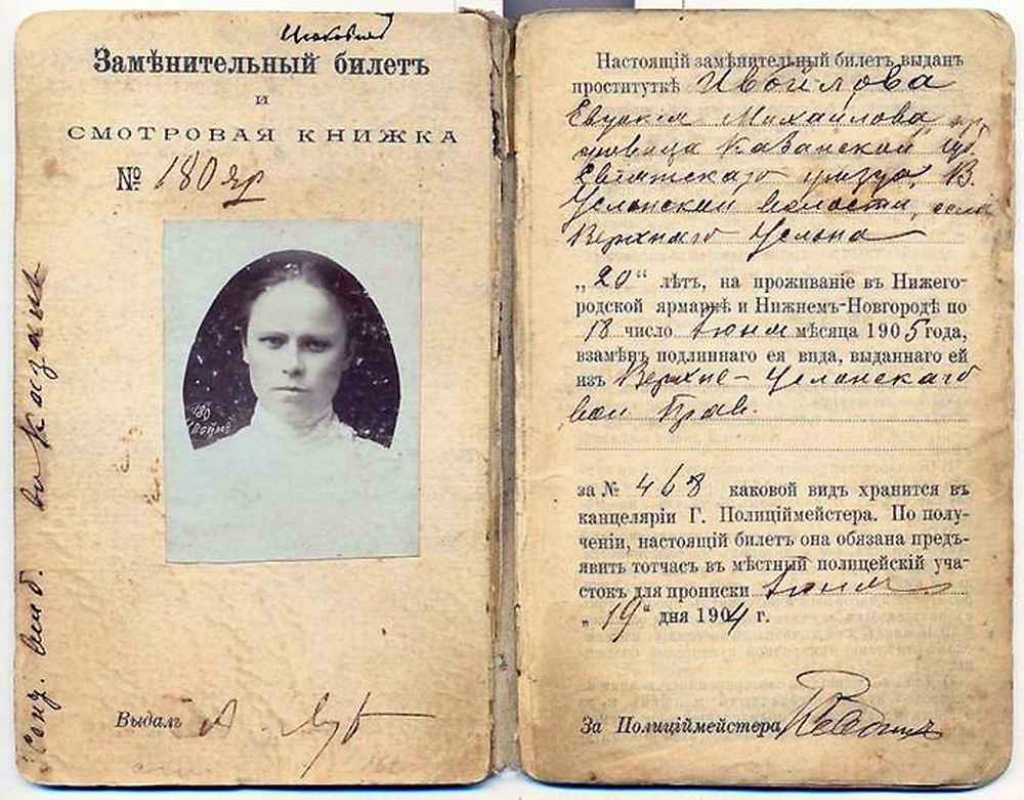 Замѣнительный билетъ
и
СМОТРОВАЯ КНИЖКА
№ 180 яр
180
въ Казань
Выдалъ А.
Настоящій замѣнительный билетъ выданъ
проституткѣ Ивойлова
Евдокія Михайлова
Казанской губ.
уѣзда, В.
Услонской волости, села
Верхняго Услона
„20“ лѣтъ, на проживаніе въ Нижего-
родской ярмаркѣ и Нижнемъ-Новгородѣ по
18 число Іюня мѣсяца 1905 года,
взамѣнъ подлиннаго ея вида, выданнаго ей
изъ Верхне-Услонскаго
вол. Прав.
за № 468 каковой видъ хранится въ
канцеляріи Г. Полиціймейстера. По полу-
ченіи, настоящій билетъ она обязана предъ-
явить тотчасъ въ мѣстный полицейскій уча-
стокъ для прописки Іюня
„19“ дня 1904 г.
За Полиціймейстера